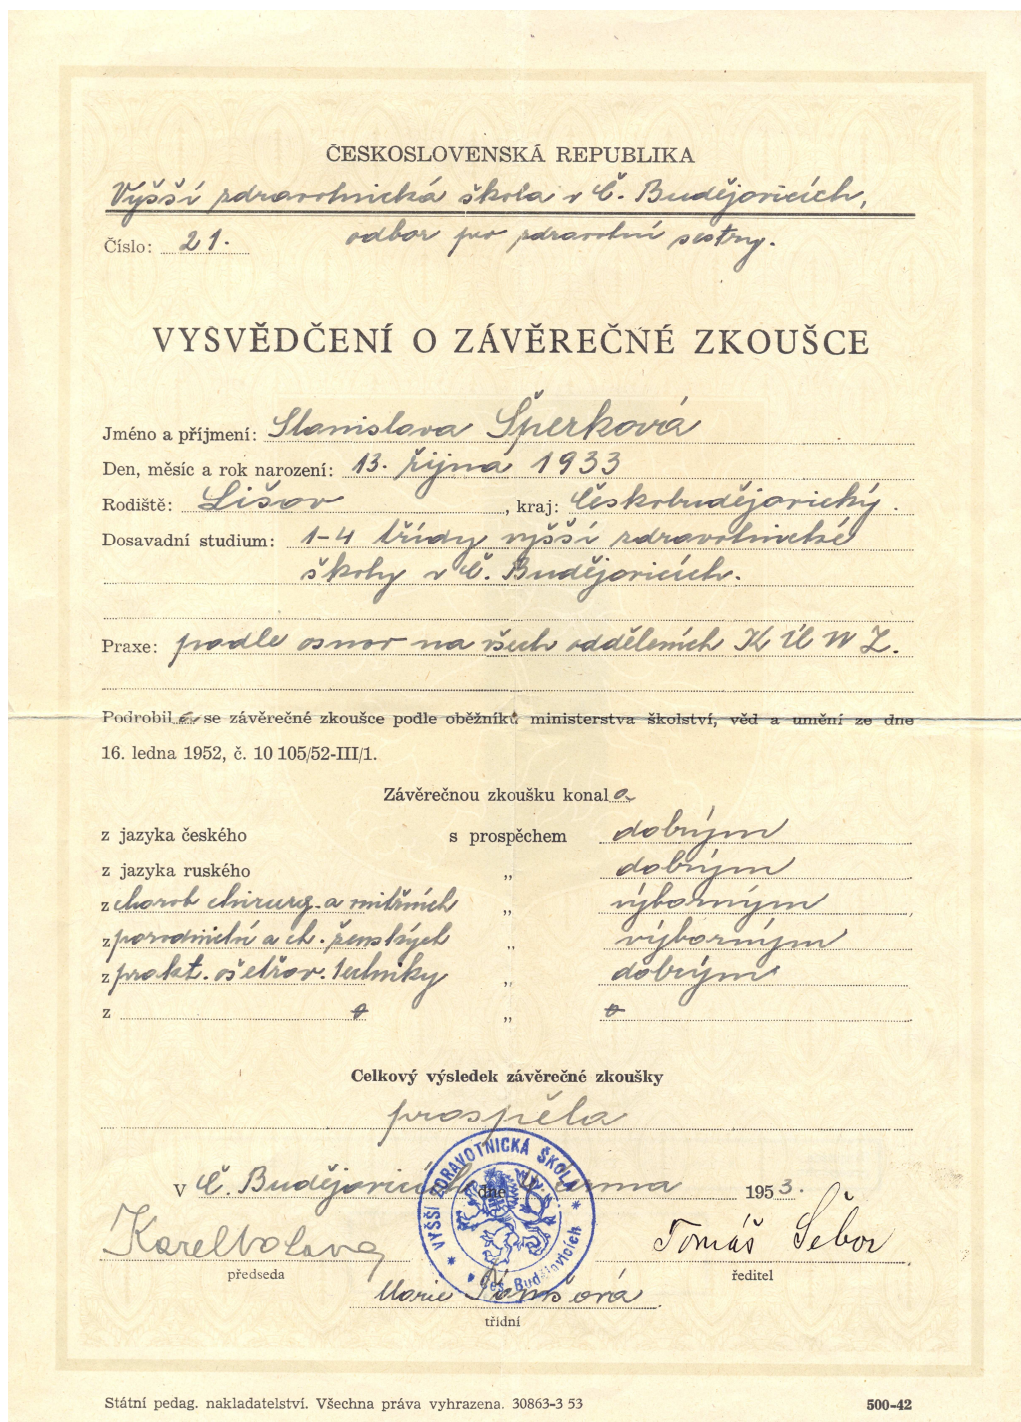 ČESKOSLOVENSKÁ REPUBLIKA
Vyšší zdravotnická škola v Č. Budějovicích,
Číslo: 21. odbor pro zdravotní sestry.
VYSVĚDČENÍ O ZÁVĚREČNÉ ZKOUŠCE
Jméno a příjmení: Stanislava Šperková
Den, měsíc a rok narození: 13. října 1933
Rodiště: Lišov, kraj: Českobudějovický.
Dosavadní studium: 1-4 třídy vyšší zdravotnické
školy v Č. Budějovicích.
Praxe: podle osnov na všech odděleních K Ú N Z.
Podrobila se závěrečné zkoušce podle oběžníků ministerstva školství, věd a umění ze dne
16. ledna 1952, č. 10 105/52-III/1.
Závěrečnou zkoušku konala
z jazyka českého s prospěchem dobrým
z jazyka ruského „ dobrým
z chorob chirurg. a vnitřních „ výborným
z porodnictví a ch. ženských „ výborným
z prakt. ošetřov. techniky „ dobrým
z „
Celkový výsledek závěrečné zkoušky
prospěla
V Č. Budějovicích dne června 1953.
VYŠŠÍ ZDRAVOTNICKÁ ŠKOLA
Čes. Budějovicích
Karel Tomáš Šebor
předseda ředitel
Marie
třídní
Státní pedag. nakladatelství. Všechna práva vyhrazena. 30863-3 53 500-42